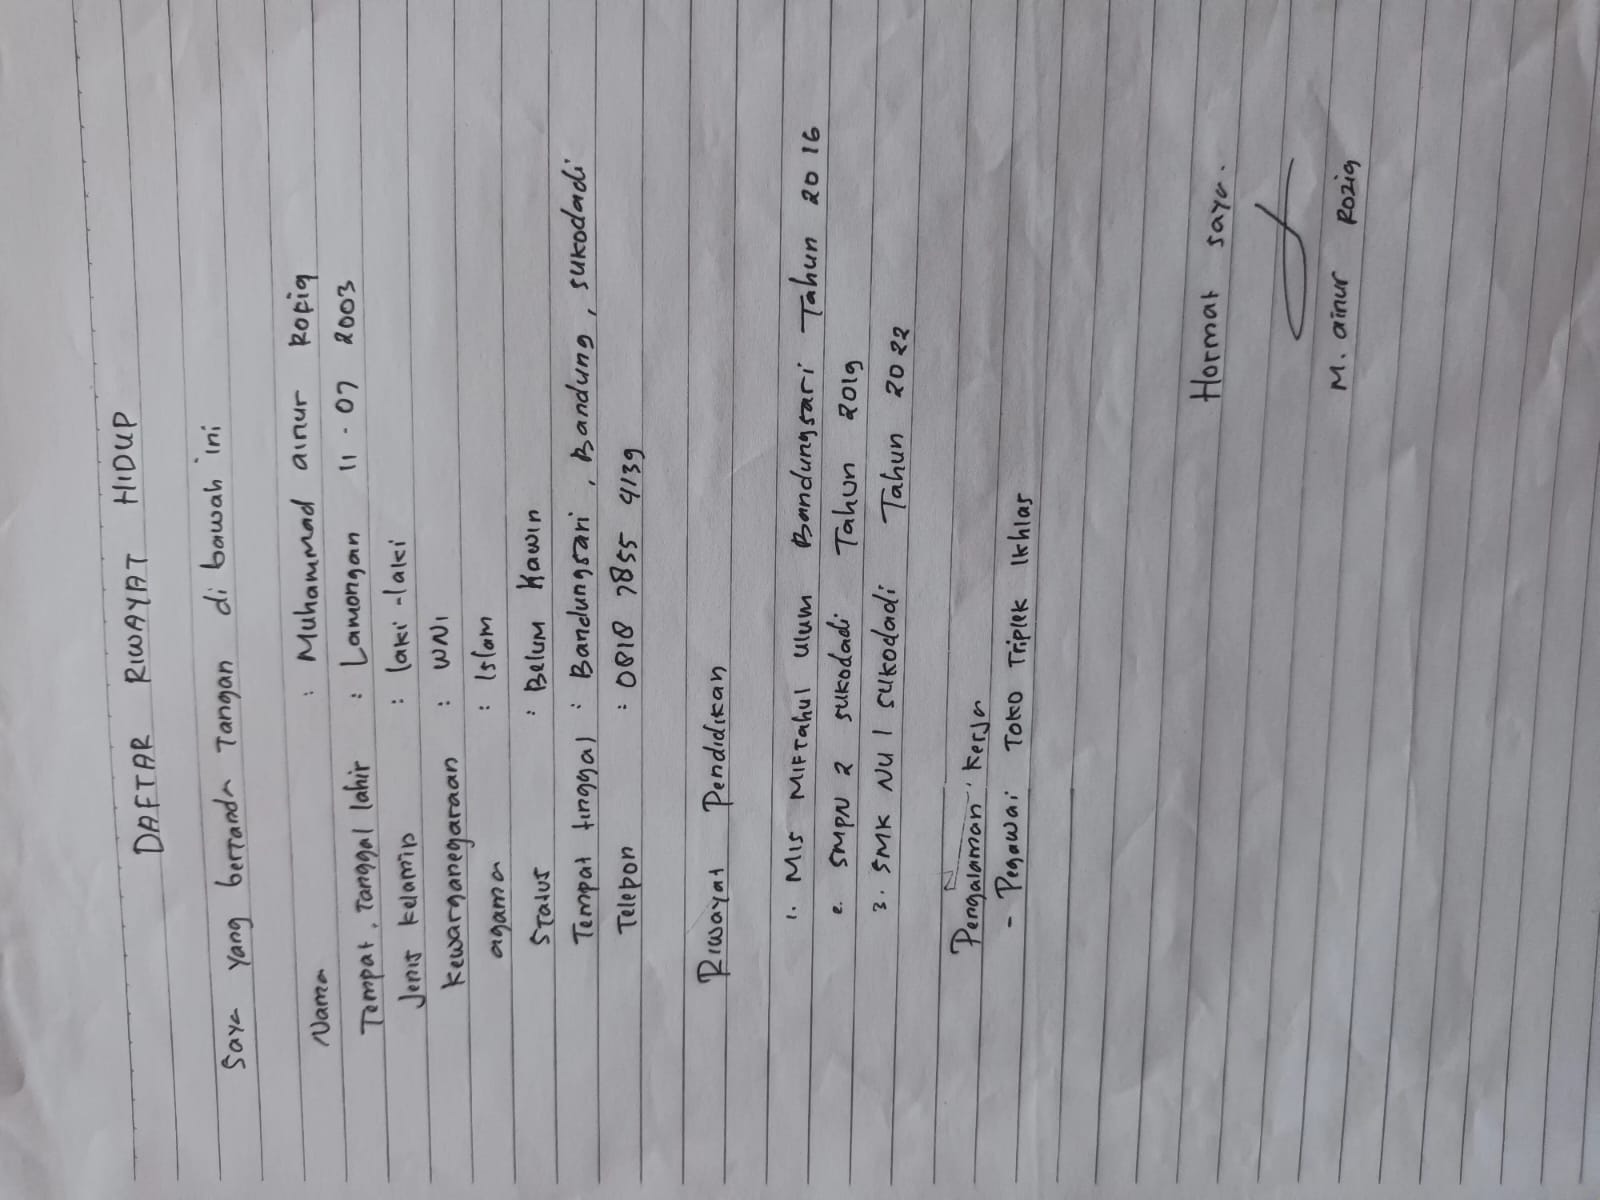 DAFTAR RIWAYAT HIDUP
Saya yang bertanda Tangan di bawah ini
Nama : Muhammad ainur Rofiq
Tempat, Tanggal lahir : Lamongan 11-07 2003
Jenis Kelamin : laki-laki
Kewarganegaraan : WNI
agama : Islam
Status : Belum Kawin
Tempat tinggal : Bandungsari, Bandung, sukodadi
Telepon : 0818 7855 4139
Riwayat Pendidikan
1. MIS MIFTahul ulum Bandungsari Tahun 2016
2. SMPN 2 sukodadi Tahun 2019
3. SMK NU 1 sukodadi Tahun 2022
Pengalaman Kerja
- Pegawai Toko Triplek Ikhlas
Hormat saya.
M. ainur Roziq